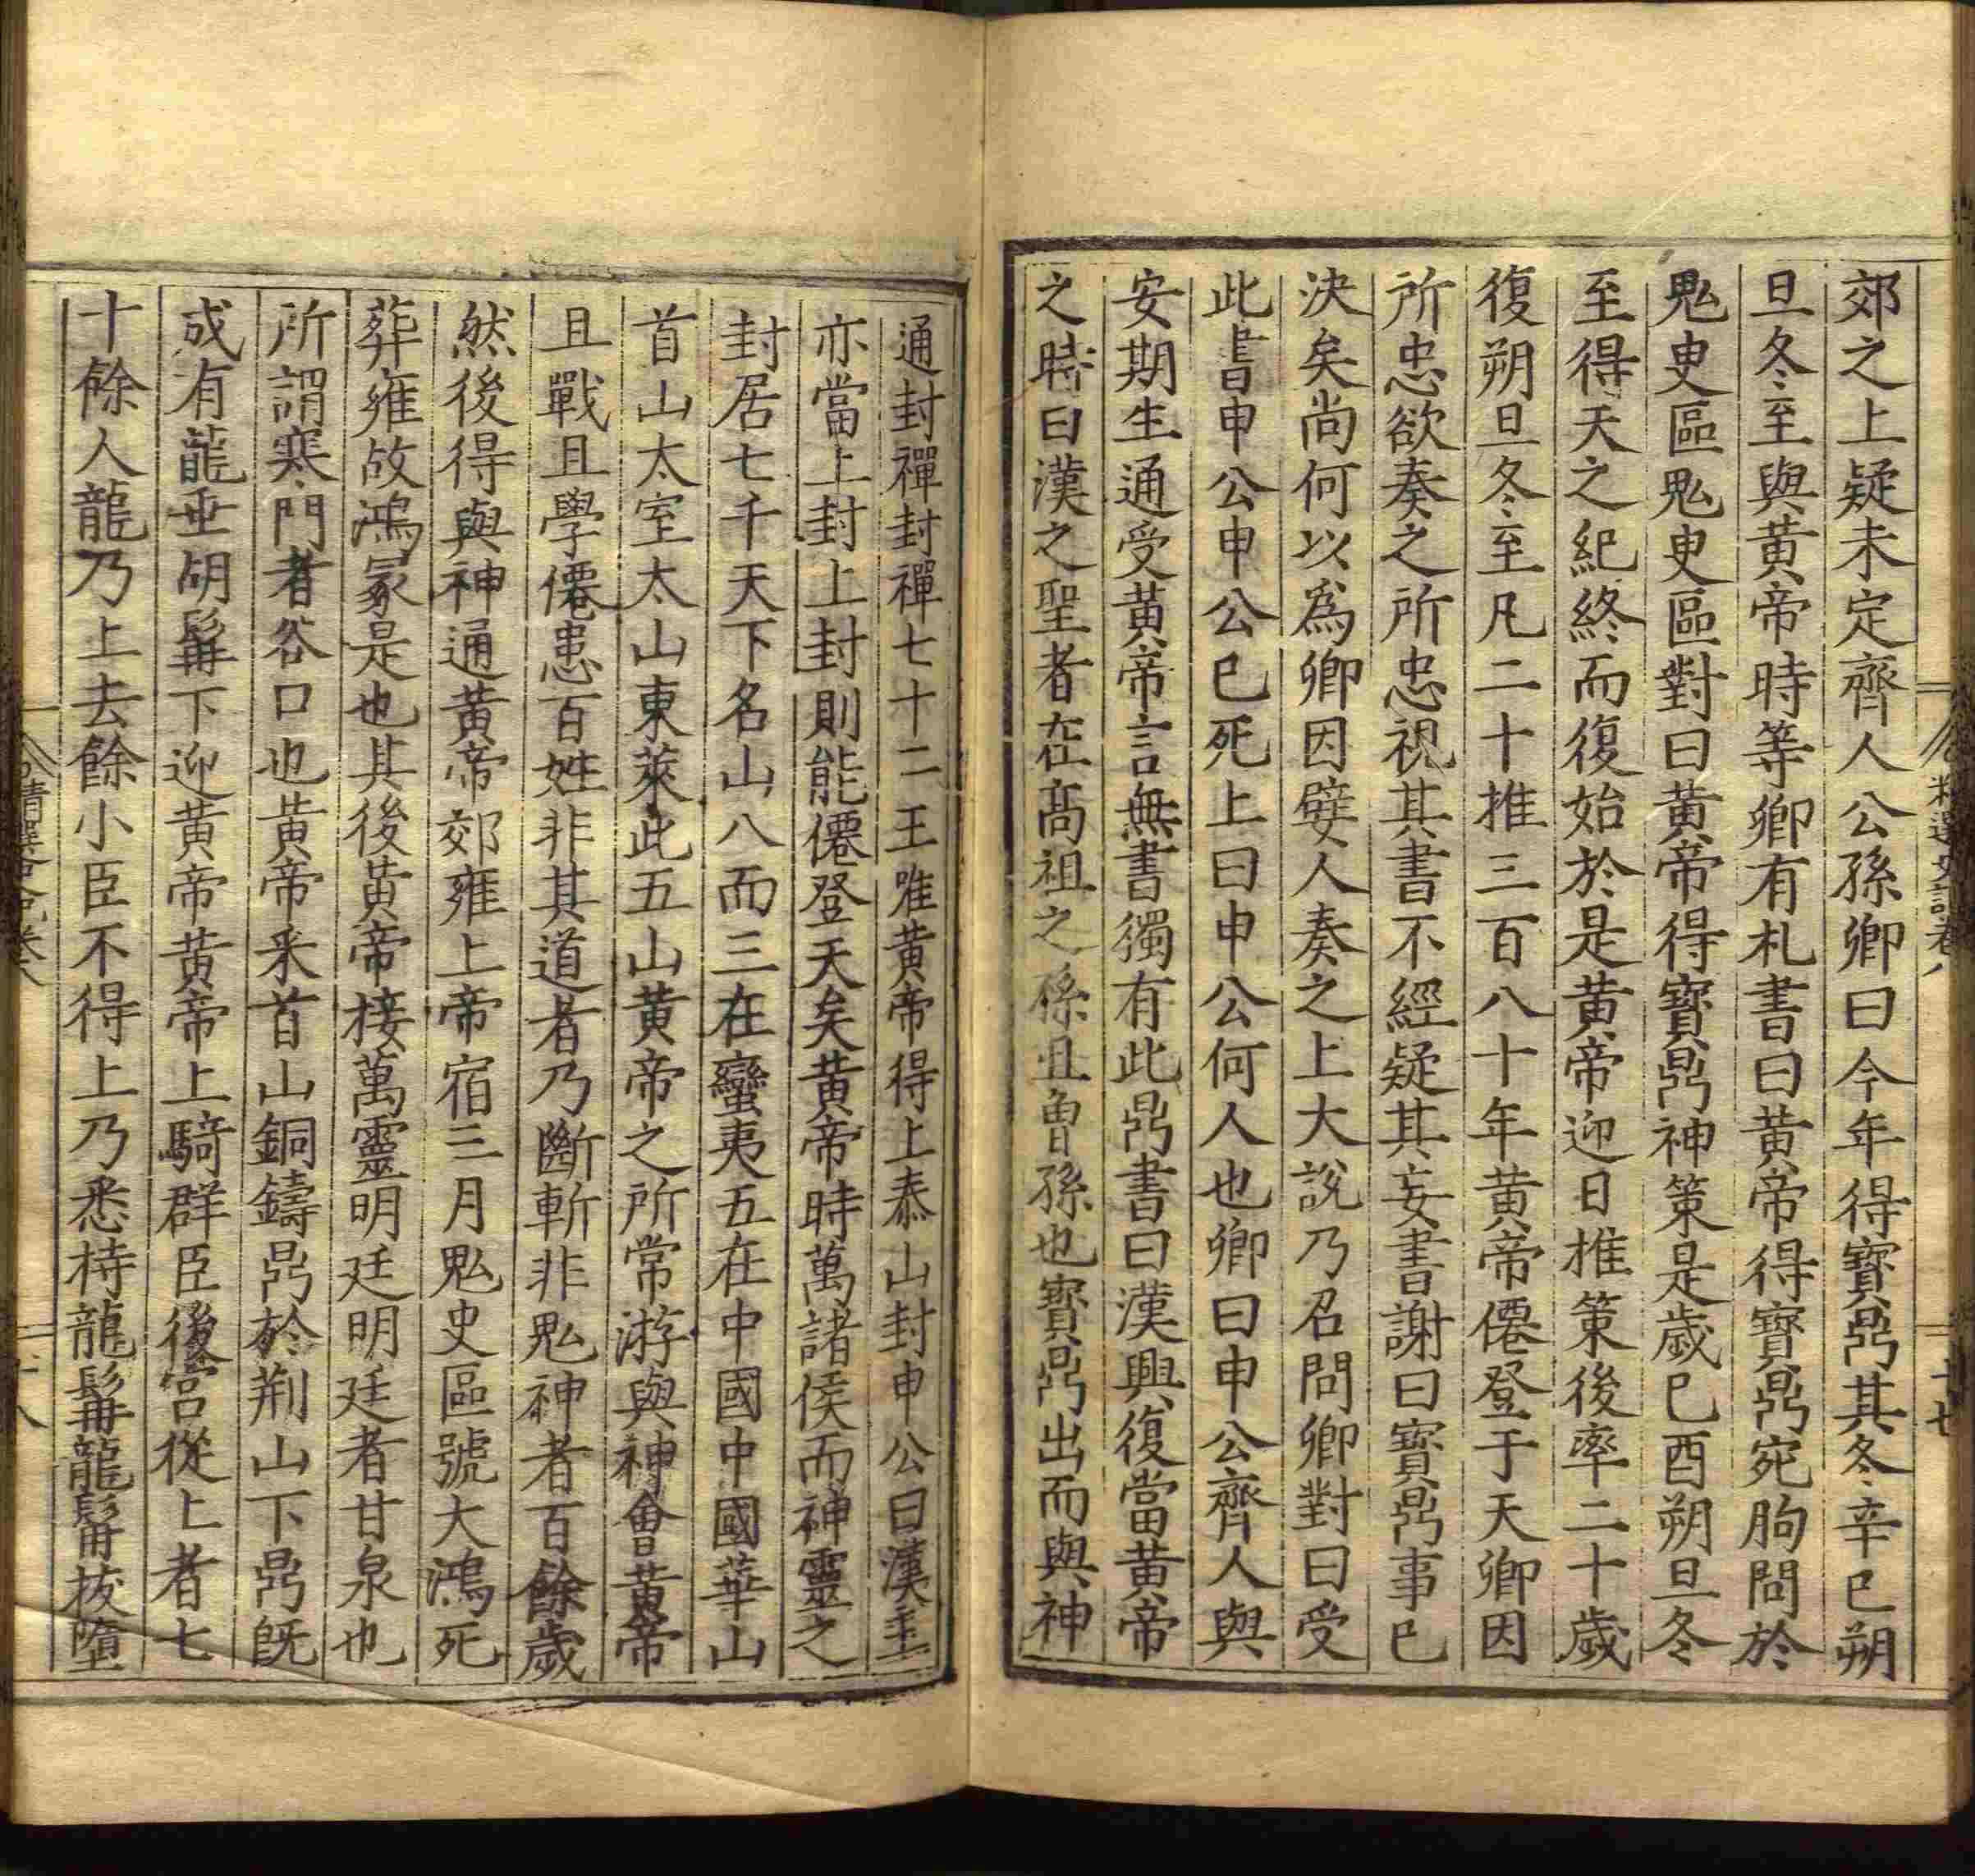 郊之上疑未定齊人公孫卿曰今年得寳鼎其冬辛巳朔
旦冬至與黄帝時等卿有札書曰黄帝得寳鼎宛朐問於
鬼臾區鬼臾區對曰黄帝得寳鼎神策是歲巳酉朔旦冬
至得天之紀終而復始於是黄帝迎日推策後率二十歲
復朔旦冬至凡二十推三百八十年黄帝僊登于天卿因
所忠欲奏之所忠視其書不經疑其妄書謝曰寳鼎事巳
決矣尚何以爲卿因嬖人奏之上大說乃召問卿對曰受
此書申公申公巳死上曰申公何人也卿曰申公齊人與
安期生通受黄帝言無書獨有此鼎書曰漢興復當黄帝
之時曰漢之聖者在髙祖之孫且曽孫也寳鼎出而與神
通封禪封禪七十二王唯黄帝得上泰山封申公曰漢主
亦當上封上封則能僊登天矣黄帝時萬諸侯而神靈之
封居七千天下名山八而三在蠻夷五在中國中國華山
首山太室太山東萊此五山黄帝之所常游與神會黄帝
且戰且學僊患百姓非其道者乃斷斬非鬼神者百餘歲
然後得與神通黄帝郊雍上帝宿三月鬼史區號大鴻死
葬雍故鴻冡是也其後黄帝接萬靈明廷明廷者甘泉也
所謂寒門者谷口也黄帝采首山銅鑄鼎於荆山下鼎旣
成有龍垂胡髯下迎黄帝黄帝上騎群臣後宮從上者七
十餘人龍乃上去餘小臣不得上乃悉持龍髯龍髯拔墮
精選史記卷八
十七
十八